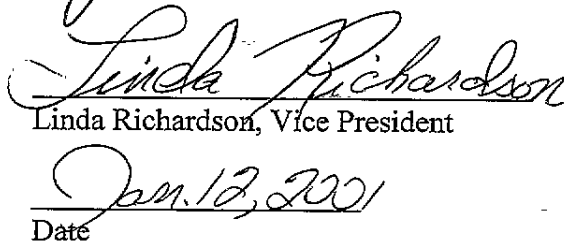 Linda Richardson
Linda Richardson, Vice President
Jan. 12, 2001
Date